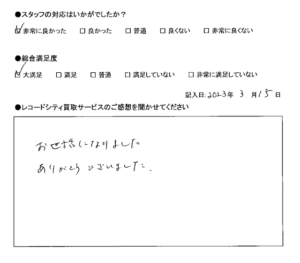 ●スタッフの対応はいかがでしたか？
☑ 非常に良かった □ 良かった □ 普通 □ 良くない □ 非常に良くない
●総合満足度
☑ 大満足 □ 満足 □ 普通 □ 満足していない □ 非常に満足していない
記入日：2023年 3月 15日
●レコードシティ買取サービスのご感想を聞かせてください
お世話になりました
ありがとうございました.